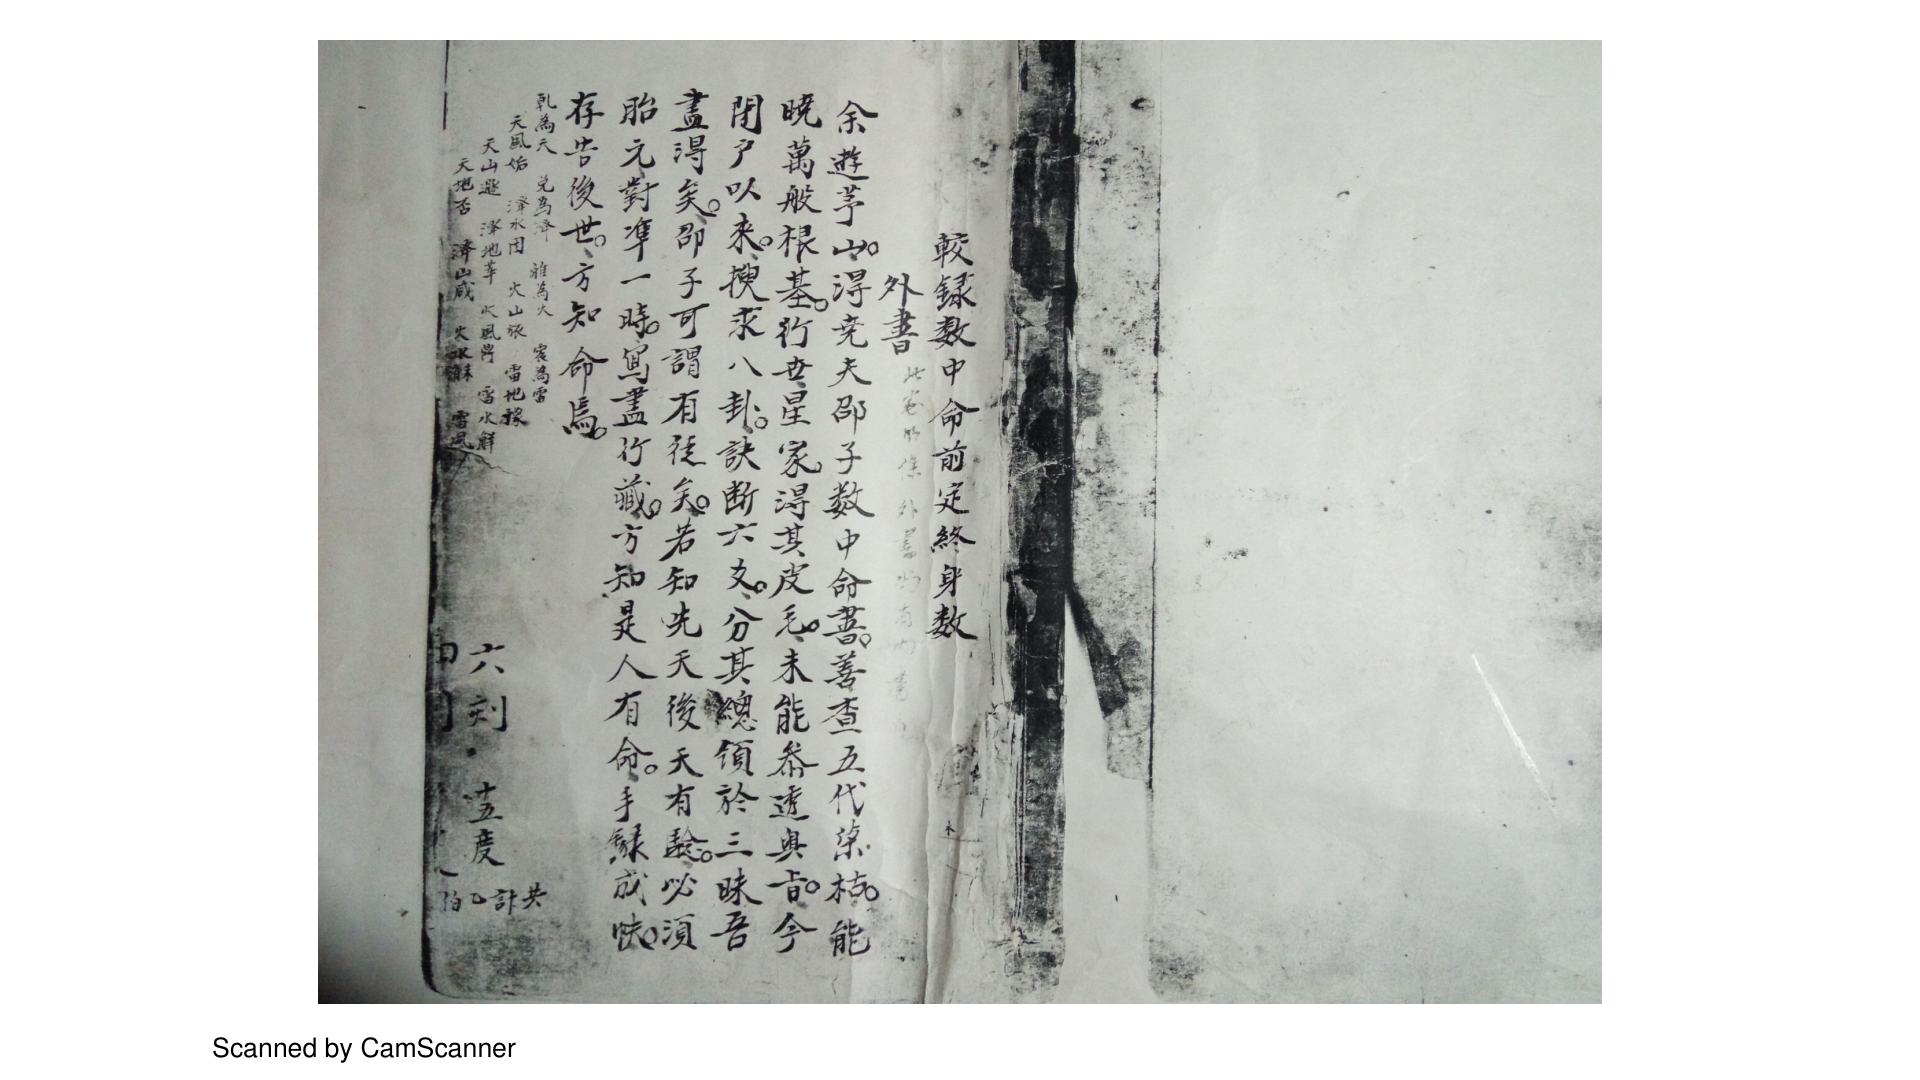 較録数中命前定終身数
外書
余遊茅山。得尭夫邵子数中命書。善查五代榮枯。能
曉萬般根基。行世星家。得其皮毛。未能叅透奥旨。今
閉户以來。摉求八卦。訣断六爻。分其總領於三昧吾
盡得矣。邵子可謂有徒矣。若知先天後天有驗。必須
胎元對準一時。寫盡行藏。方知是人有命。手録成帙。
存告後世。方知命焉。
乹為天 兑為澤 離為火 震為雷
天風姤 澤水困 火山旅 雷地豫
天山遯 澤地萃 火風鼎 雷水觧
天地否 澤山咸 雷風
六刻 十五度
共計